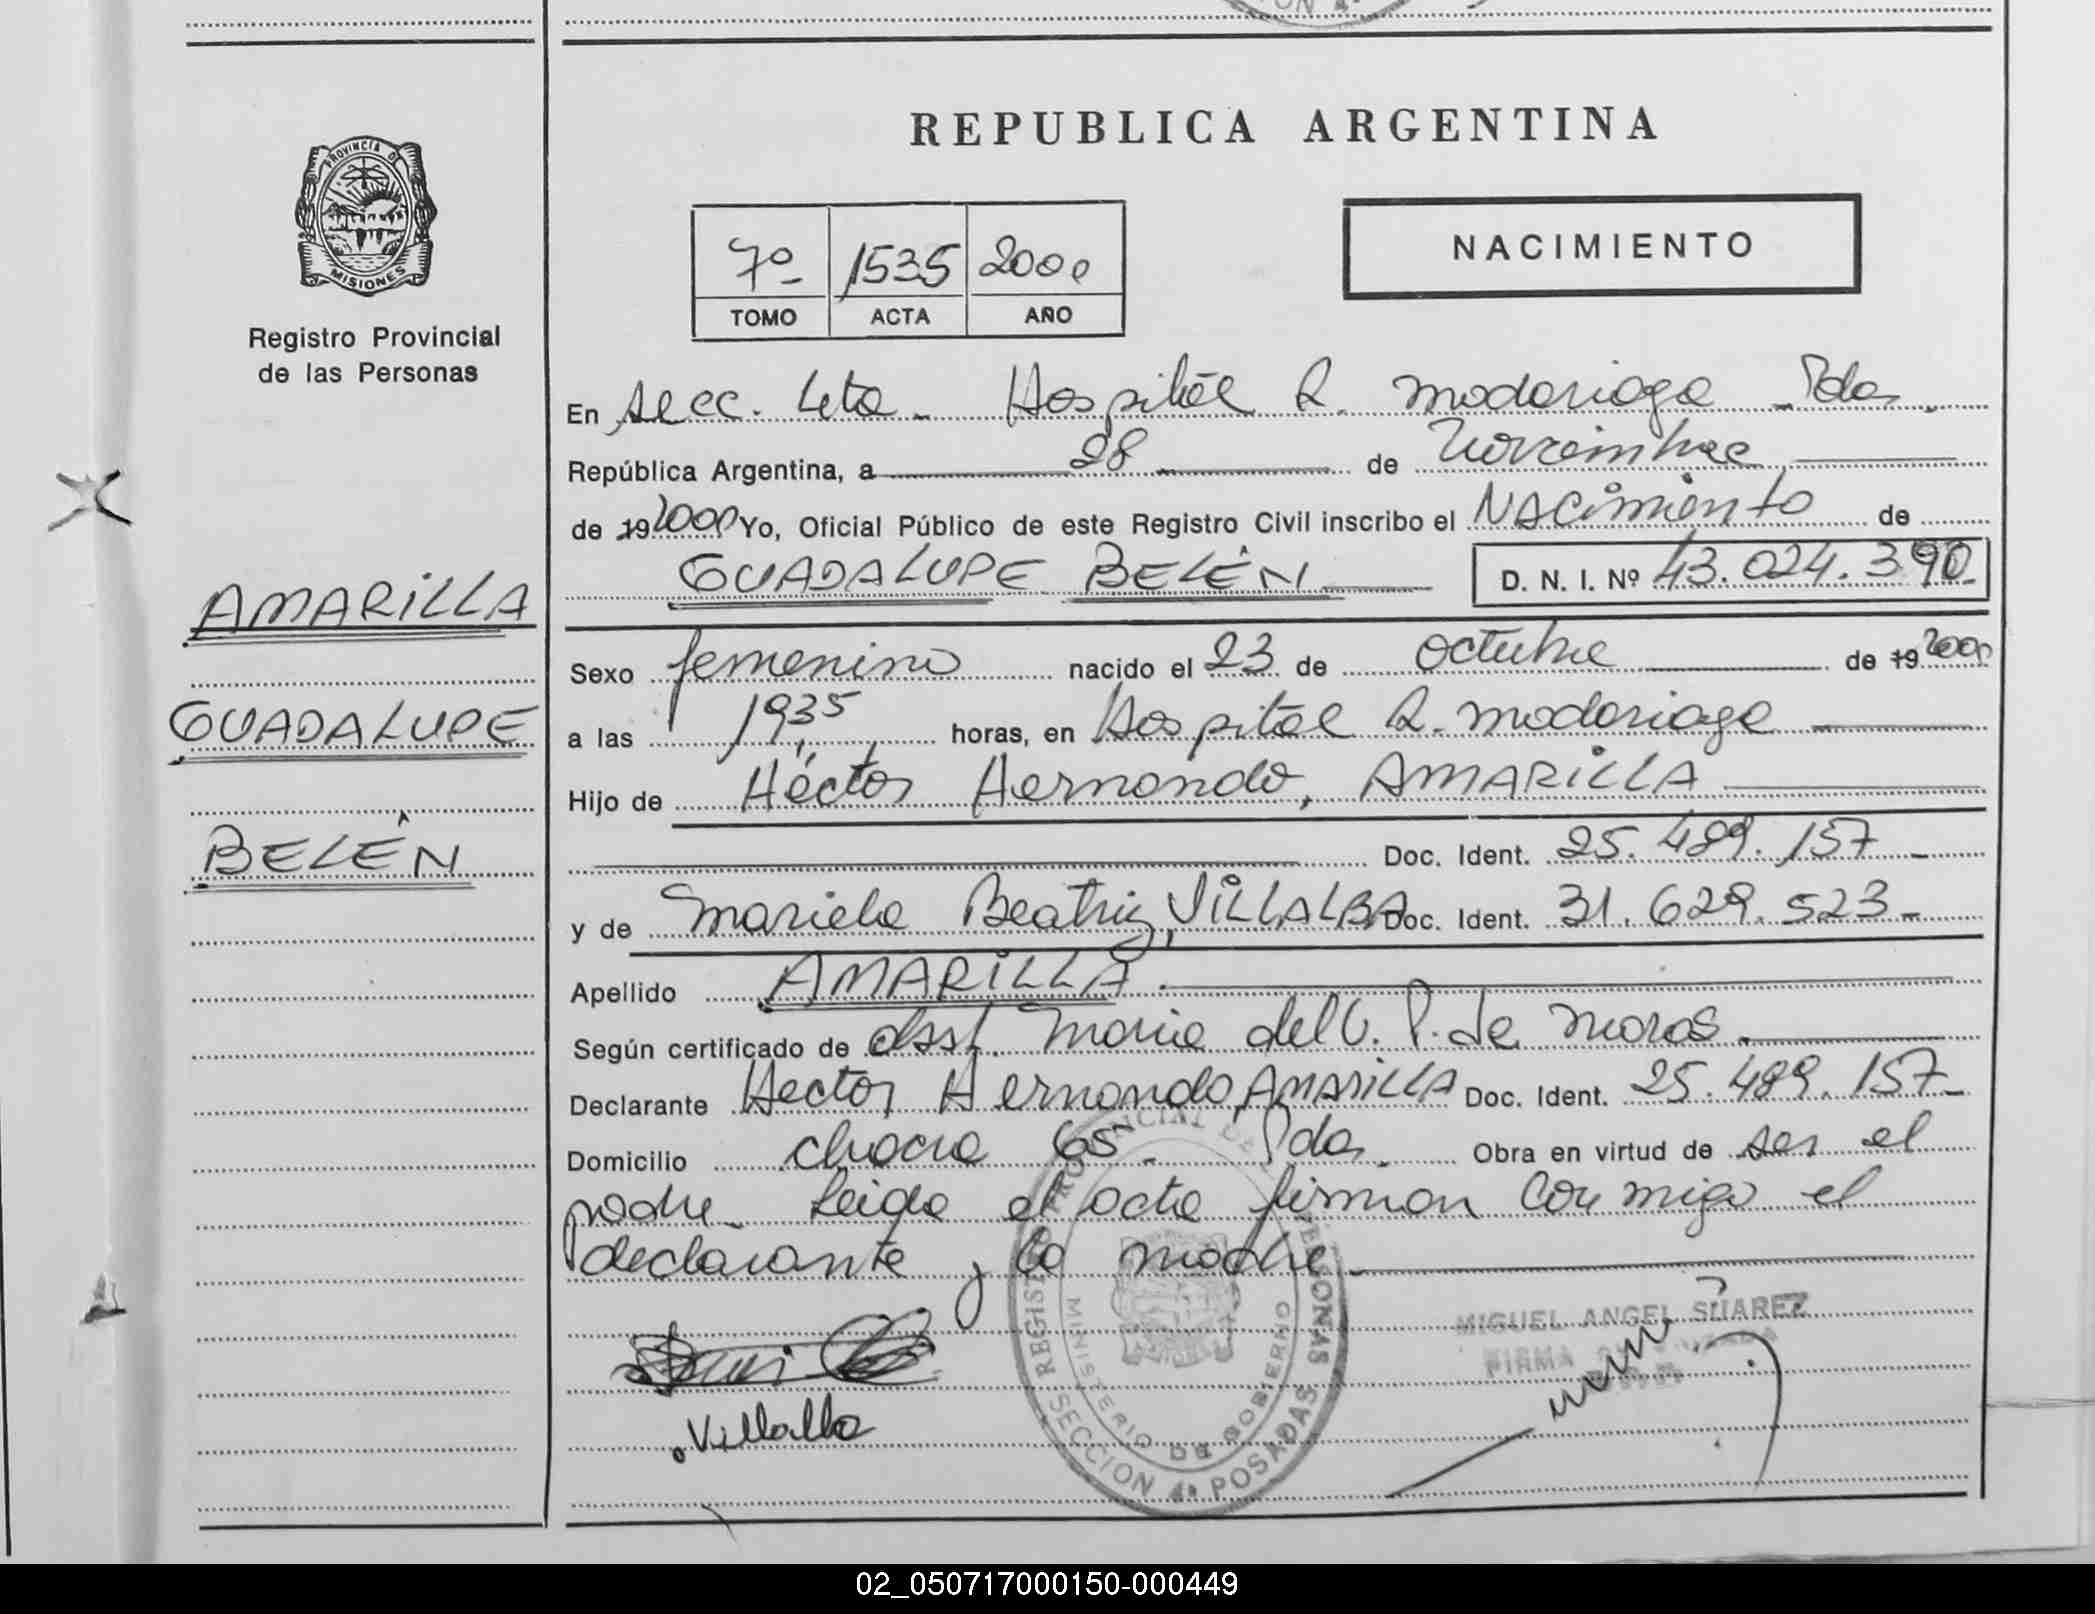 REPUBLICA ARGENTINA
PROVINCIA DE
MISIONES
Registro Provincial
de las Personas
7º 1535 2000
TOMO ACTA AÑO
NACIMIENTO
En Secc. 4ta - Hospital R. Madariaga - Pdas.
República Argentina, a 28 de Noviembre
de 19 2000 Yo, Oficial Público de este Registro Civil inscribo el NACimiento de
GUADALUPE BELÉN D. N. I. Nº 43.024.390
AMARiLLA
GUADALUPE
BELÉN
Sexo femenino nacido el 23 de Octubre de 19 2000
a las 1935 horas, en Hospital R. Madariaga
Hijo de Héctor Hernando, AMARiLLA
Doc. Ident. 25.489.157 -
y de Mariela Beatriz, ViLLALBA Doc. Ident. 31.629.523 -
Apellido AMARiLLA.
Según certificado de Obst. Maria del C. P. de Moras.
Declarante Hector Hernando AMARiLLA Doc. Ident. 25.489.157 -
Domicilio chacra 65 - Pdas. Obra en virtud de ser el
padre - Leida el acta firman conmigo el
declarante y la madre
Villalba
REGISTRO PROVINCIAL DE LAS PERSONAS
MINISTERIO DE GOBIERNO
SECCION 4ª POSADAS
MIGUEL ANGEL SUAREZ
FIRMA
02_050717000150-000449